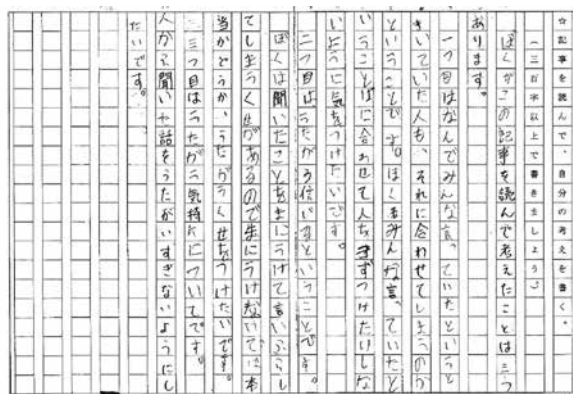 ☆記事を読んで、自分の考えを書く。
(三百字以上で書きましょう)
ぼくがこの記事を読んで考えたことは三つ
あります。
一つ目はなんでみんな言っていたというと
きいていた人も、それに合わせてしまうのか
ということです。ぼくもみんな言っていたと
いうことばに合わせて人をきずつけたりしな
いように気をつけたいです。
二つ目はうたがう信いすということです。
ぼくは聞いたことをまにうけて言いふらし
てしまうくせがあるので生にうけないで、本
当かどうか、うたがうくせをつけたいです。
三つ目はうたがう気持ちについてです。
人から聞いた話をうたがいすぎないようにし
たいです。